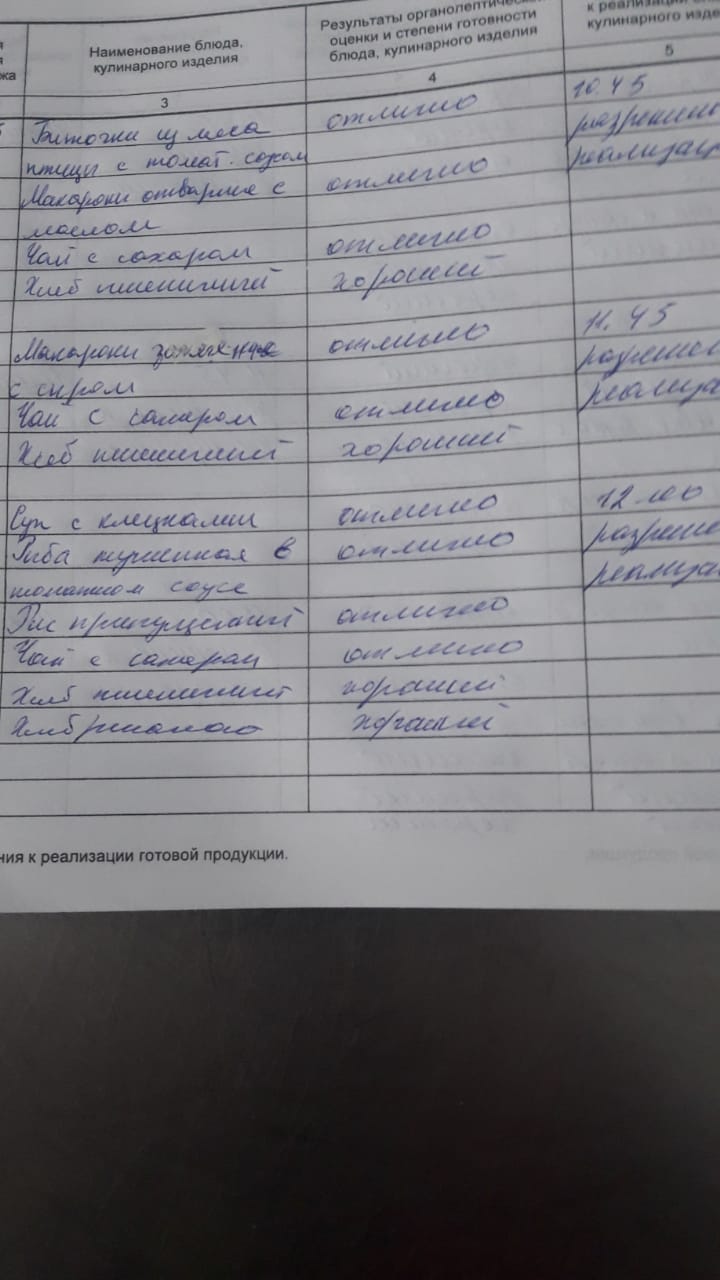 Наименование блюда,
кулинарного изделия
Результаты органолептической
оценки и степени готовности
блюда, кулинарного изделия
к реализации
кулинарного изделия
3
4
5
Биточки из мяса отлично 10.45
птицы с томат. соком разрешено
Макароны отварные с отлично реализац
маслом
Чай с сахаром отлично
Хлеб пшеничный хороший
Макароны запеченные отлично 11.45
с сыром разрешен
Чай с сахаром отлично реализа
Хлеб пшеничный хороший
Суп с клецками отлично 12.00
Рыба тушенная в отлично разреше
томатном соусе реализа
Рис припущенный отлично
Чай с сахаром отлично
Хлеб пшеничный хороший
Хлеб ржаной хороший
ния к реализации готовой продукции.